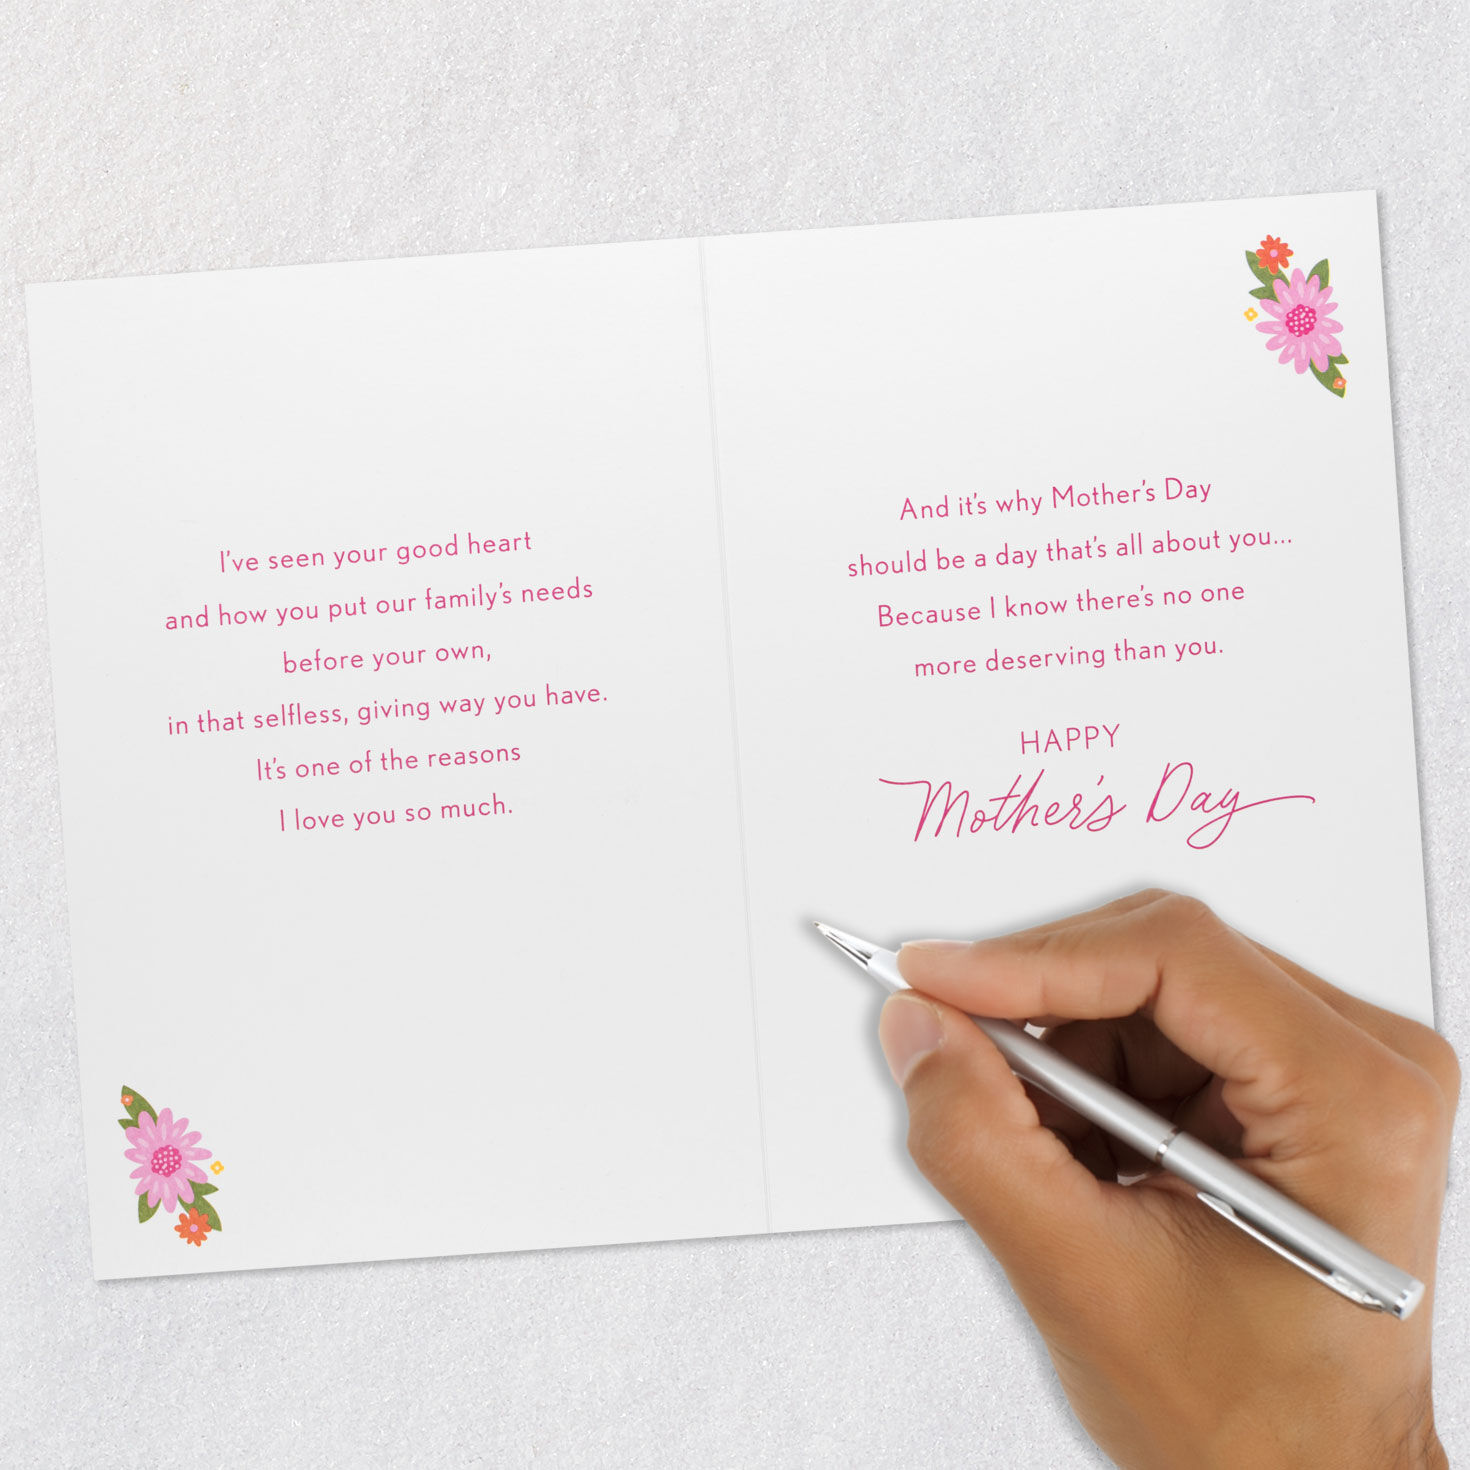 I've seen your good heart
and how you put our family's needs
before your own,
in that selfless, giving way you have.
It's one of the reasons
I love you so much.
And it's why Mother's Day
should be a day that's all about you...
Because I know there's no one
more deserving than you.
HAPPY
Mother's Day